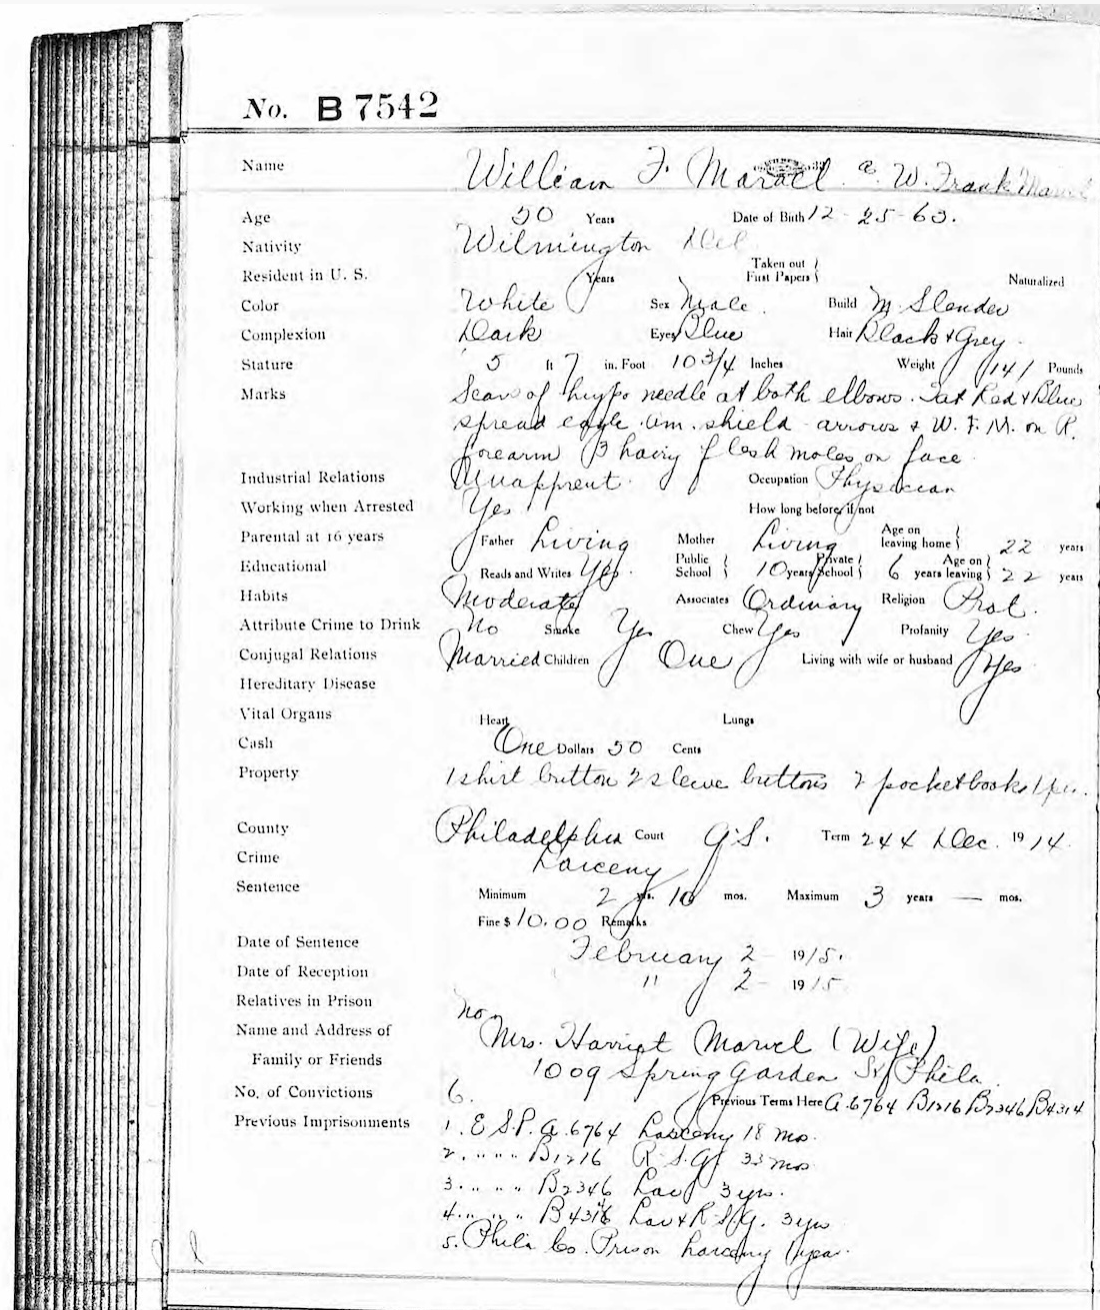 No. B 7542
Name William F. Marvel a. W. Frank Marvel
Age 50 Years Date of Birth 12-25-63.
Nativity Wilmington Del
Resident in U. S. Years Taken out First Papers Naturalized
Color White Sex Male. Build M Slender
Complexion Dark Eyes Blue Hair Black & Grey.
Stature 5 ft 7 in. Foot 10 3/4 Inches Weight 141 Pounds
Marks Scars of hypo needle at both elbows. Tat Red & Blue
spread eagle Am. shield - arrows & W. F. M. on R.
forearm 3 hairy flesh moles on face
Industrial Relations Unapprent. Occupation Physician
Working when Arrested Yes How long before, if not
Parental at 16 years Father Living Mother Living Age on leaving home 22 years
Educational Reads and Writes Yes. Public School 10 years Private School 6 years Age on leaving 22 years
Habits Moderate Associates Ordinary Religion Prot.
Attribute Crime to Drink No Smoke Yes Chew Yes Profanity Yes.
Conjugal Relations Married Children One Living with wife or husband Yes
Hereditary Disease
Vital Organs Heart Lungs
Cash One Dollars 50 Cents
Property 1 shirt button 2 sleeve buttons 2 pocketbooks 1
County Philadelphia Court Q.S. Term 244 Dec. 1914
Crime Larceny
Sentence Minimum 2 yrs. 10 mos. Maximum 3 years — mos.
Fine $ 10.00 Remarks
Date of Sentence February 2 - 1915.
Date of Reception " 2 - 1915
Relatives in Prison No
Name and Address of Mrs. Harriet Marvel (Wife)
Family or Friends 1009 Spring Garden St Phila
No. of Convictions 6. Previous Terms Here A.6764 B1216 B2346 B4314
Previous Imprisonments 1. E.S.P. A.6764 Larceny 18 mo.
2. " " " B1216 R.S.G. 33 mos
3. " " " B2346 Lar 3 yrs.
4. " " " Lar & R.S.G. 3 yrs
5. Phila Co. Prison Larceny 1 year.